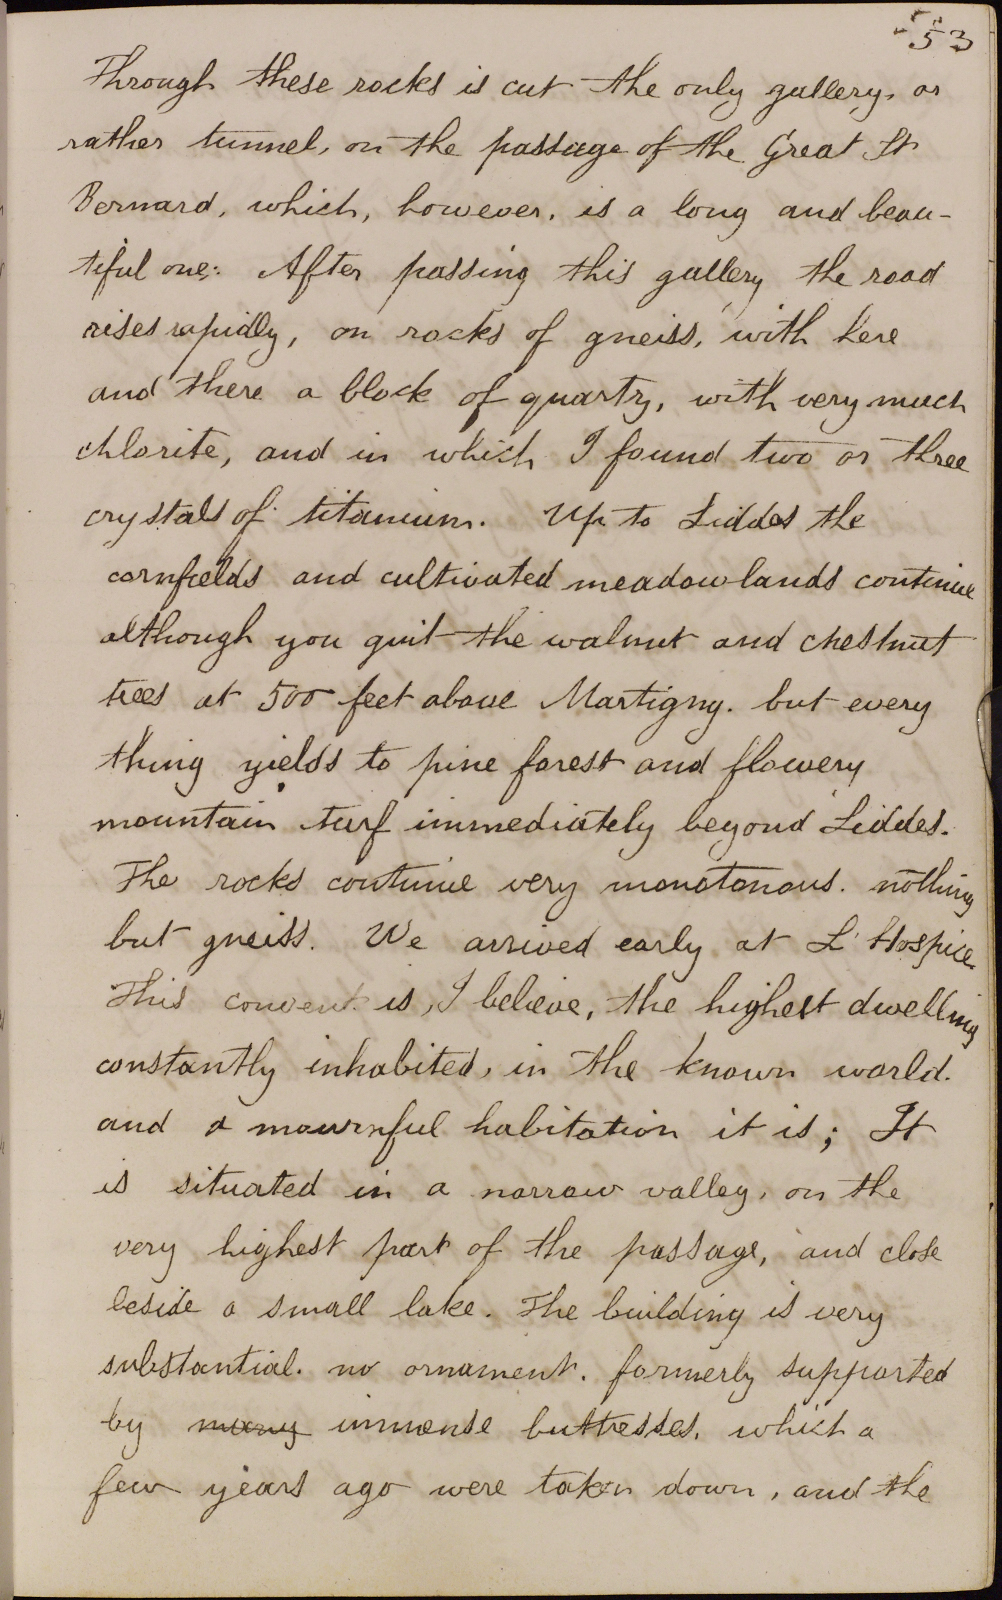 53
Through these rocks is cut the only gallery, or
rather tunnel, on the passage of the Great St
Bernard, which, however, is a long and beau-
tiful one: After passing this gallery the road
rises rapidly, on rocks of gneiss, with here
and there a block of quartz, with very much
chlorite, and in which I found two or three
crystals of titanium. Up to Liddes the
cornfields and cultivated meadowlands continue
although you quit the walnut and chestnut
trees at 500 feet above Martigny. but every
thing yields to pine forest and flowery
mountain turf immediately beyond Liddes.
The rocks continue very monotonous. nothing
but gneiss. We arrived early at L'Hospice.
This convent is, I believe, the highest dwelling
constantly inhabited, in the known world.
and a mournful habitation it is; It
is situated in a narrow valley, on the
very highest part of the passage, and close
beside a small lake. The building is very
substantial. no ornament. formerly supported
by many immense buttresses, which a
few years ago were taken down, and the